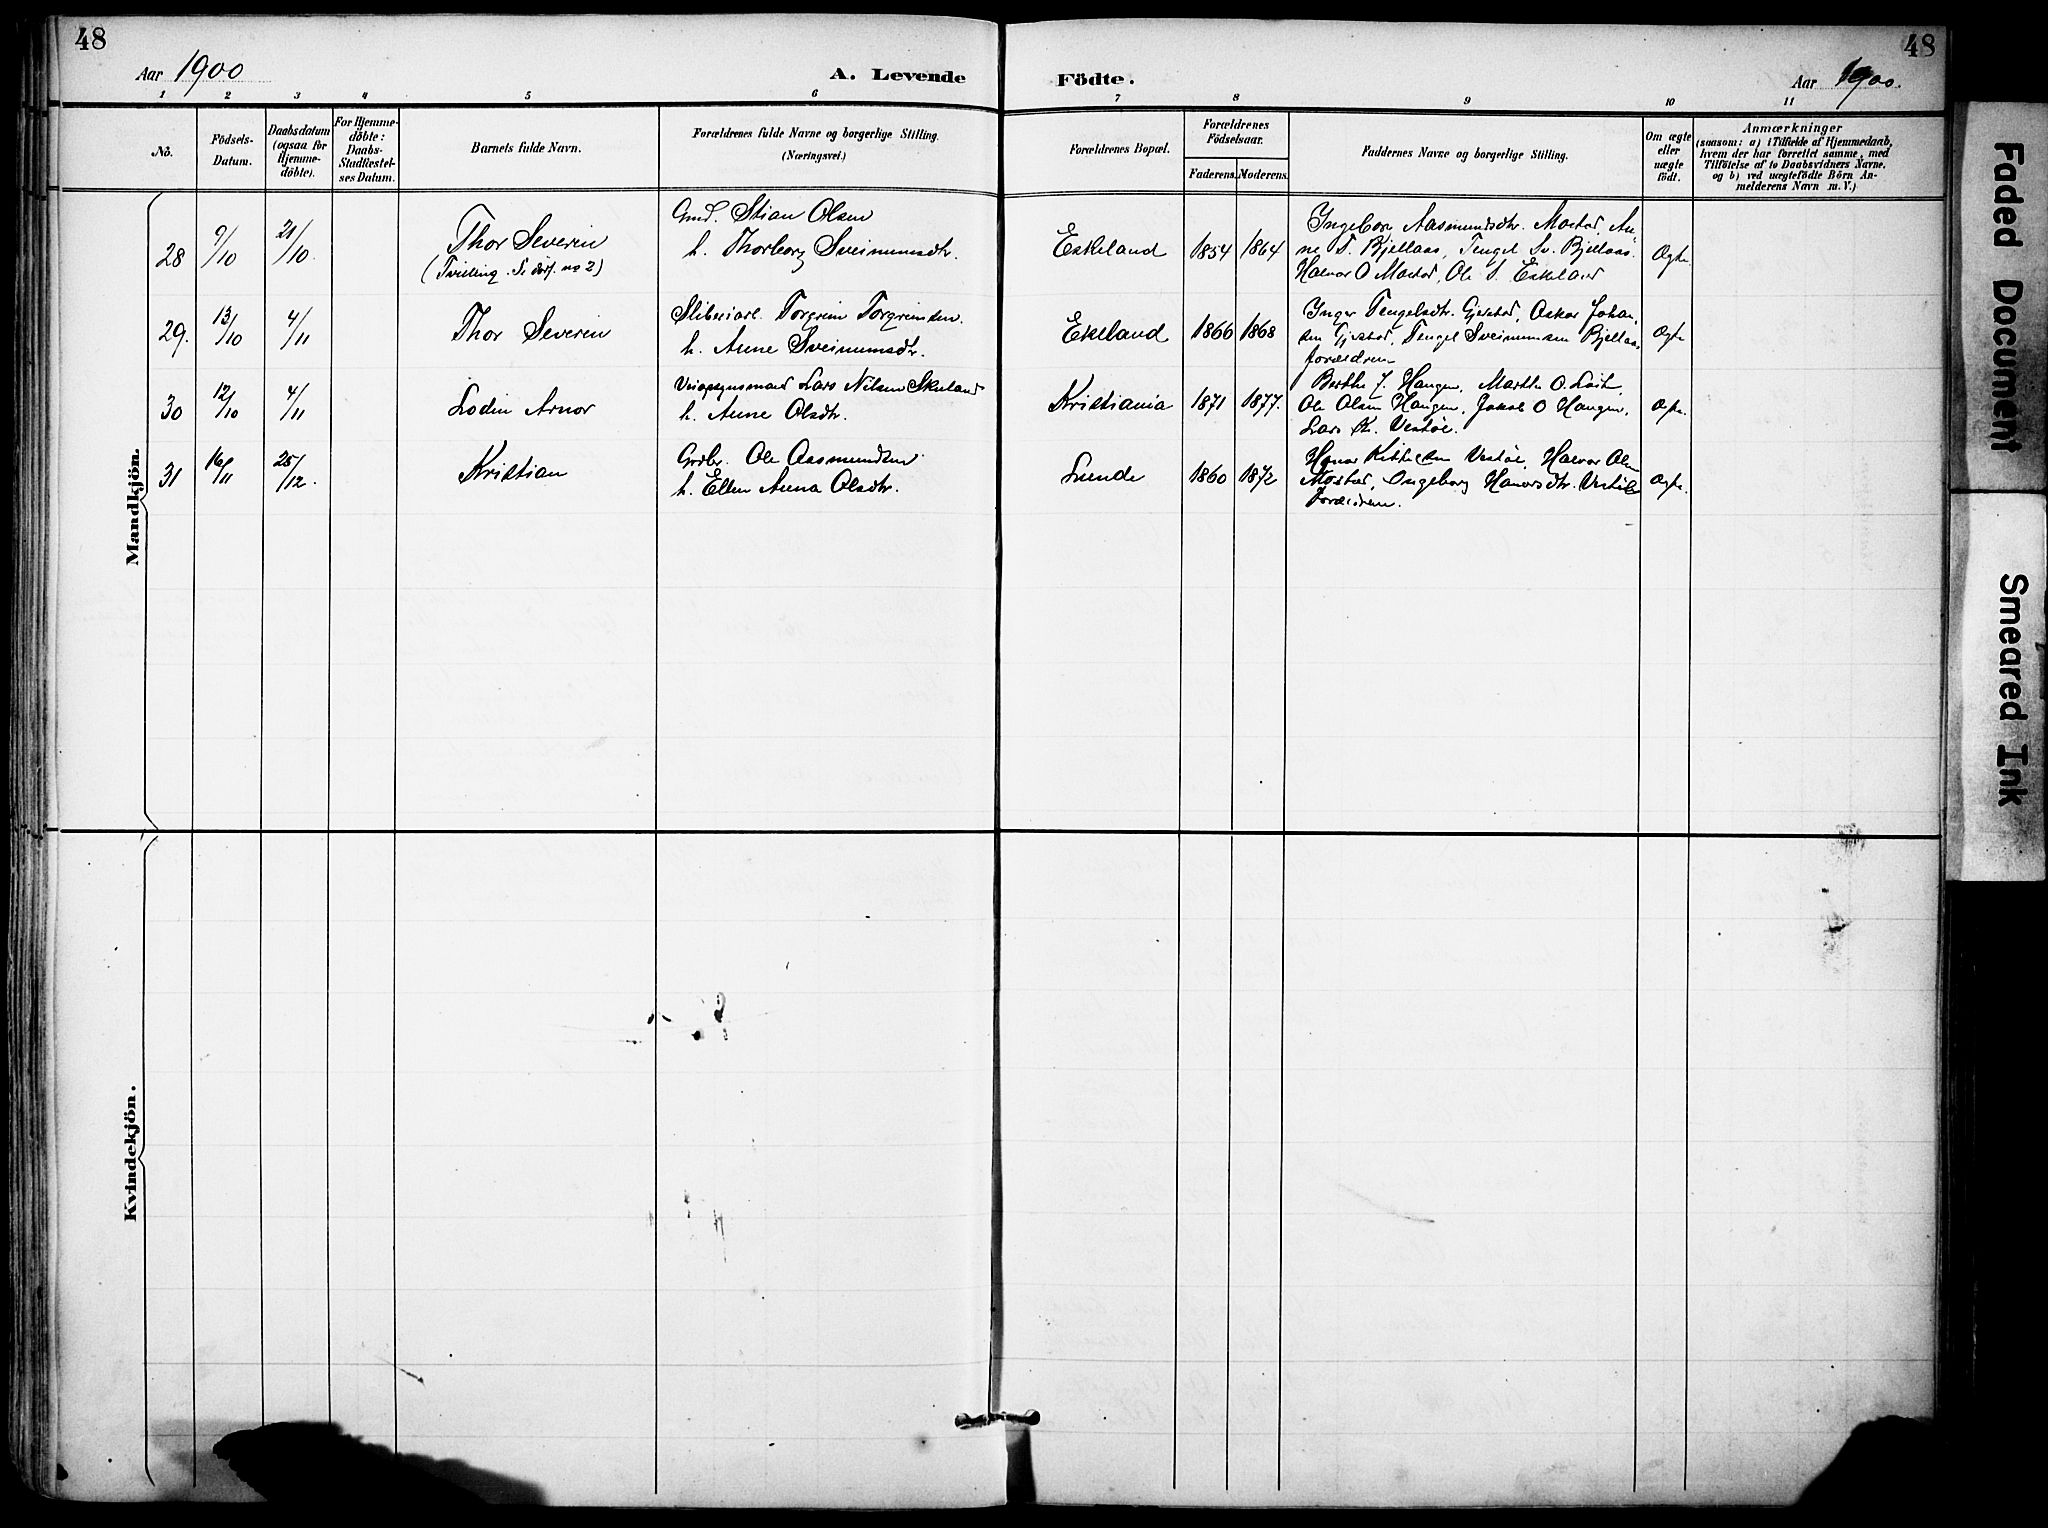 48
Aar 1900
A. Levende Födte.
Aar 1900.
48
1 2 3 4 5 6 7 8 9 10 11
No.
Födsels-
Datum.
Daabsdatum
(ogsaa for
Hjemme-
döbte).
For Hjemme-
döbte:
Daabs-
Stadfæstel-
ses Datum.
Barnets fulde Navn.
Forældrenes fulde Navne og borgerlige Stilling.
(Næringsvei.)
Forældrenes Bopæl.
Forældrenes
Födselsaar.
Faderens. Moderens.
Faddernes Navne og borgerlige Stilling.
Om ægte
eller
uægte
födt.
Anmærkninger
(saasom: a) i Tilfælde af Hjemmedaab,
hvem der har forrettet samme, med
Tilföielse af to Daabsvidners Navne.
og b) ved uægtefödte Börn An-
melderens Navn m. V.)
Mandkjön.
28
9/10
21/10
Thor Severin
(Tvilling. Se döpf. no 2)
Gmd. Stian Olsen
h. Thorborg Sveinumsdtr.
Eskeland
1854
1864
Ingeborg Aasmundsdtr. Mostad, An-
ne T. Bjellaas, Tengel Sv. Bjellaas.
Halvor O Mostad, Ole S. Eskeland
Ægte.
29.
13/10
4/11
Thor Severin
Sliberiarb. Torgrim Torgrimsen.
h. Anne Sveinumsdtr.
Eskeland
1866
1868
Inger Tengelsdtr. Gjerstad, Oskar Johan-
sen Gjerstad, Tengel Sveinumsen Bjellaas
forældrene
Ægte
30
12/10
4/11
Lodin Arnor
Veiopsynsmand Lars Nilsen Skuland
h. Anne Olsdtr.
Kristiania
1871
1877.
Berthe J. Haugen, Marthe O. Loite
Ole Olsen Haugen, Jakob O Haugen,
Lars K. Vestøl.
Ægte.
31
16/11
25/12.
Kristian
Grdbr. Ole Aasmundsen
h. Ellen Anna Olsdtr.
Lunde
1860
1872
Halvor Olsen
Mostad, Ingeborg Halvorsdtr. Vestøl
Forældrene.
Ægte.
Kvindekjön.
Faded Document
Smeared Ink